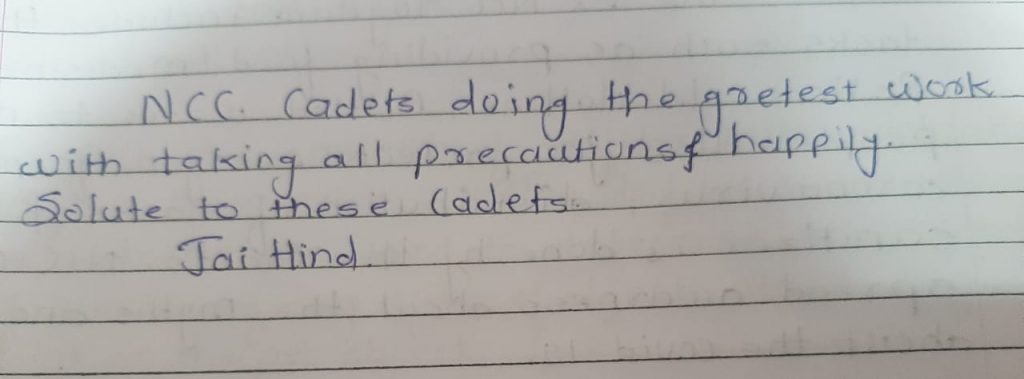 NCC. Cadets doing the gretest work
with taking all precautions & happily.
Solute to these Cadets.
Jai Hind.